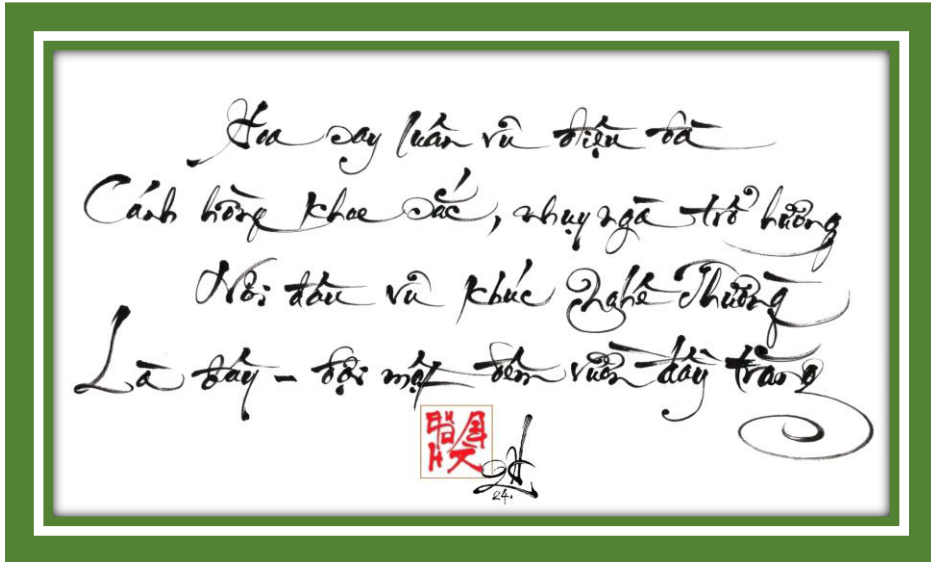 Hoa say luân vũ diệu đà
Cánh hồng khoe sắc, nhuỵ ngà trổ hương
Nơi đâu vũ khúc Nghê Thường
Là đây - đợi một đêm vườn đầy trăng
24.